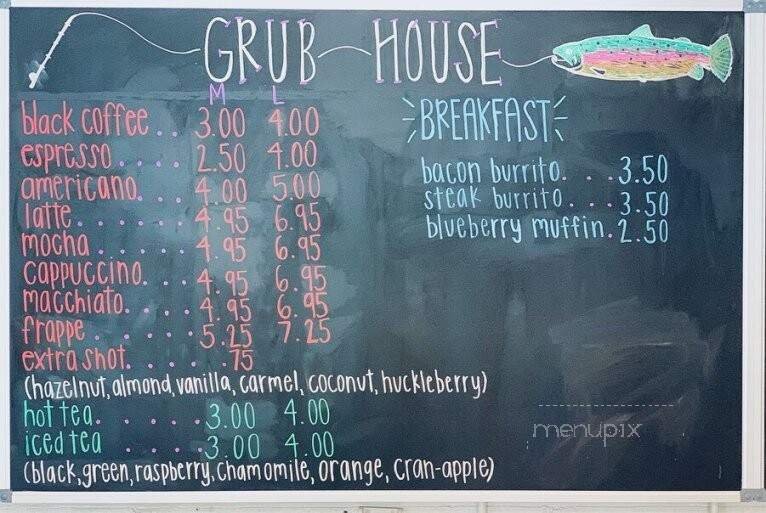 GRUB HOUSE
M L
black coffee . . 3.00 4.00
espresso . . . . 2.50 4.00
americano. . . 4.00 5.00
latte. . . . . . 4.95 6.95
mocha . . . . . 4.95 6.95
cappuccino. . . 4.95 6.95
macchiato. . . . 4.95 6.95
frappe . . . . . 5.25 7.25
extra shot. . . . .75
(hazelnut, almond, vanilla, carmel, coconut, huckleberry)
hot tea. . . . . 3.00 4.00
iced tea . . . . . 3.00 4.00
(black, green, raspberry, chamomile, orange, cran-apple)
BREAKFAST
bacon burrito. . . . 3.50
steak burrito. . . . 3.50
blueberry muffin. 2.50
menupix